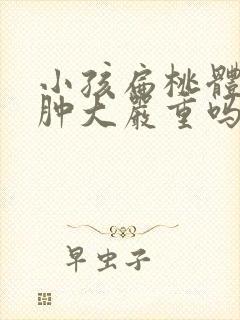 小孩扁桃體
肿大嚴重吗
早虫子